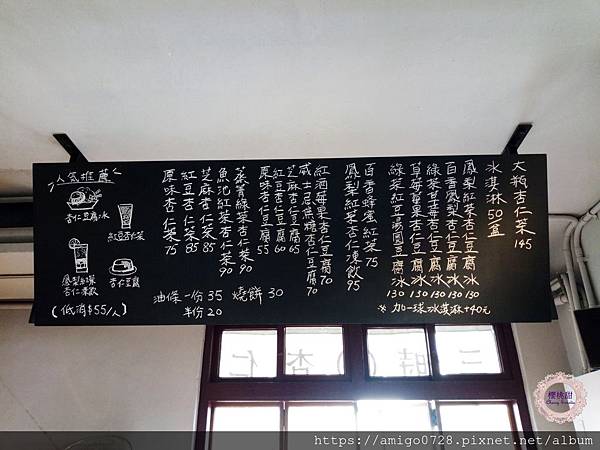 人氣推薦
杏仁豆腐冰
紅豆杏仁茶
杏仁豆腐
(低消$55/人)
大瓶杏仁茶 145
冰淇淋 50 盒
鳳梨紅茶杏仁豆腐冰 130
百香鳳梨杏仁豆腐冰 130
綠茶草莓杏仁豆腐冰 130
草莓蘋果杏仁豆腐冰 130
綠茶紅豆湯圓豆腐冰 130
※ 加一球冰淇淋+40元
百香蜂蜜紅茶 75
鳳梨紅茶杏仁凍飲 95
紅酒莓果杏仁豆腐 70
威士忌焦糖杏仁豆腐 70
芝麻杏仁豆腐 65
紅豆杏仁豆腐 60
原味杏仁豆腐 55
燒餅 30
魚池紅茶杏仁茶 90
芝麻杏仁茶 85
紅豆杏仁茶 85
原味杏仁茶 75
油條一份 35
半份 20
三時〇杏仁
櫻桃甜
https://amigo0728.pixnet.net/album